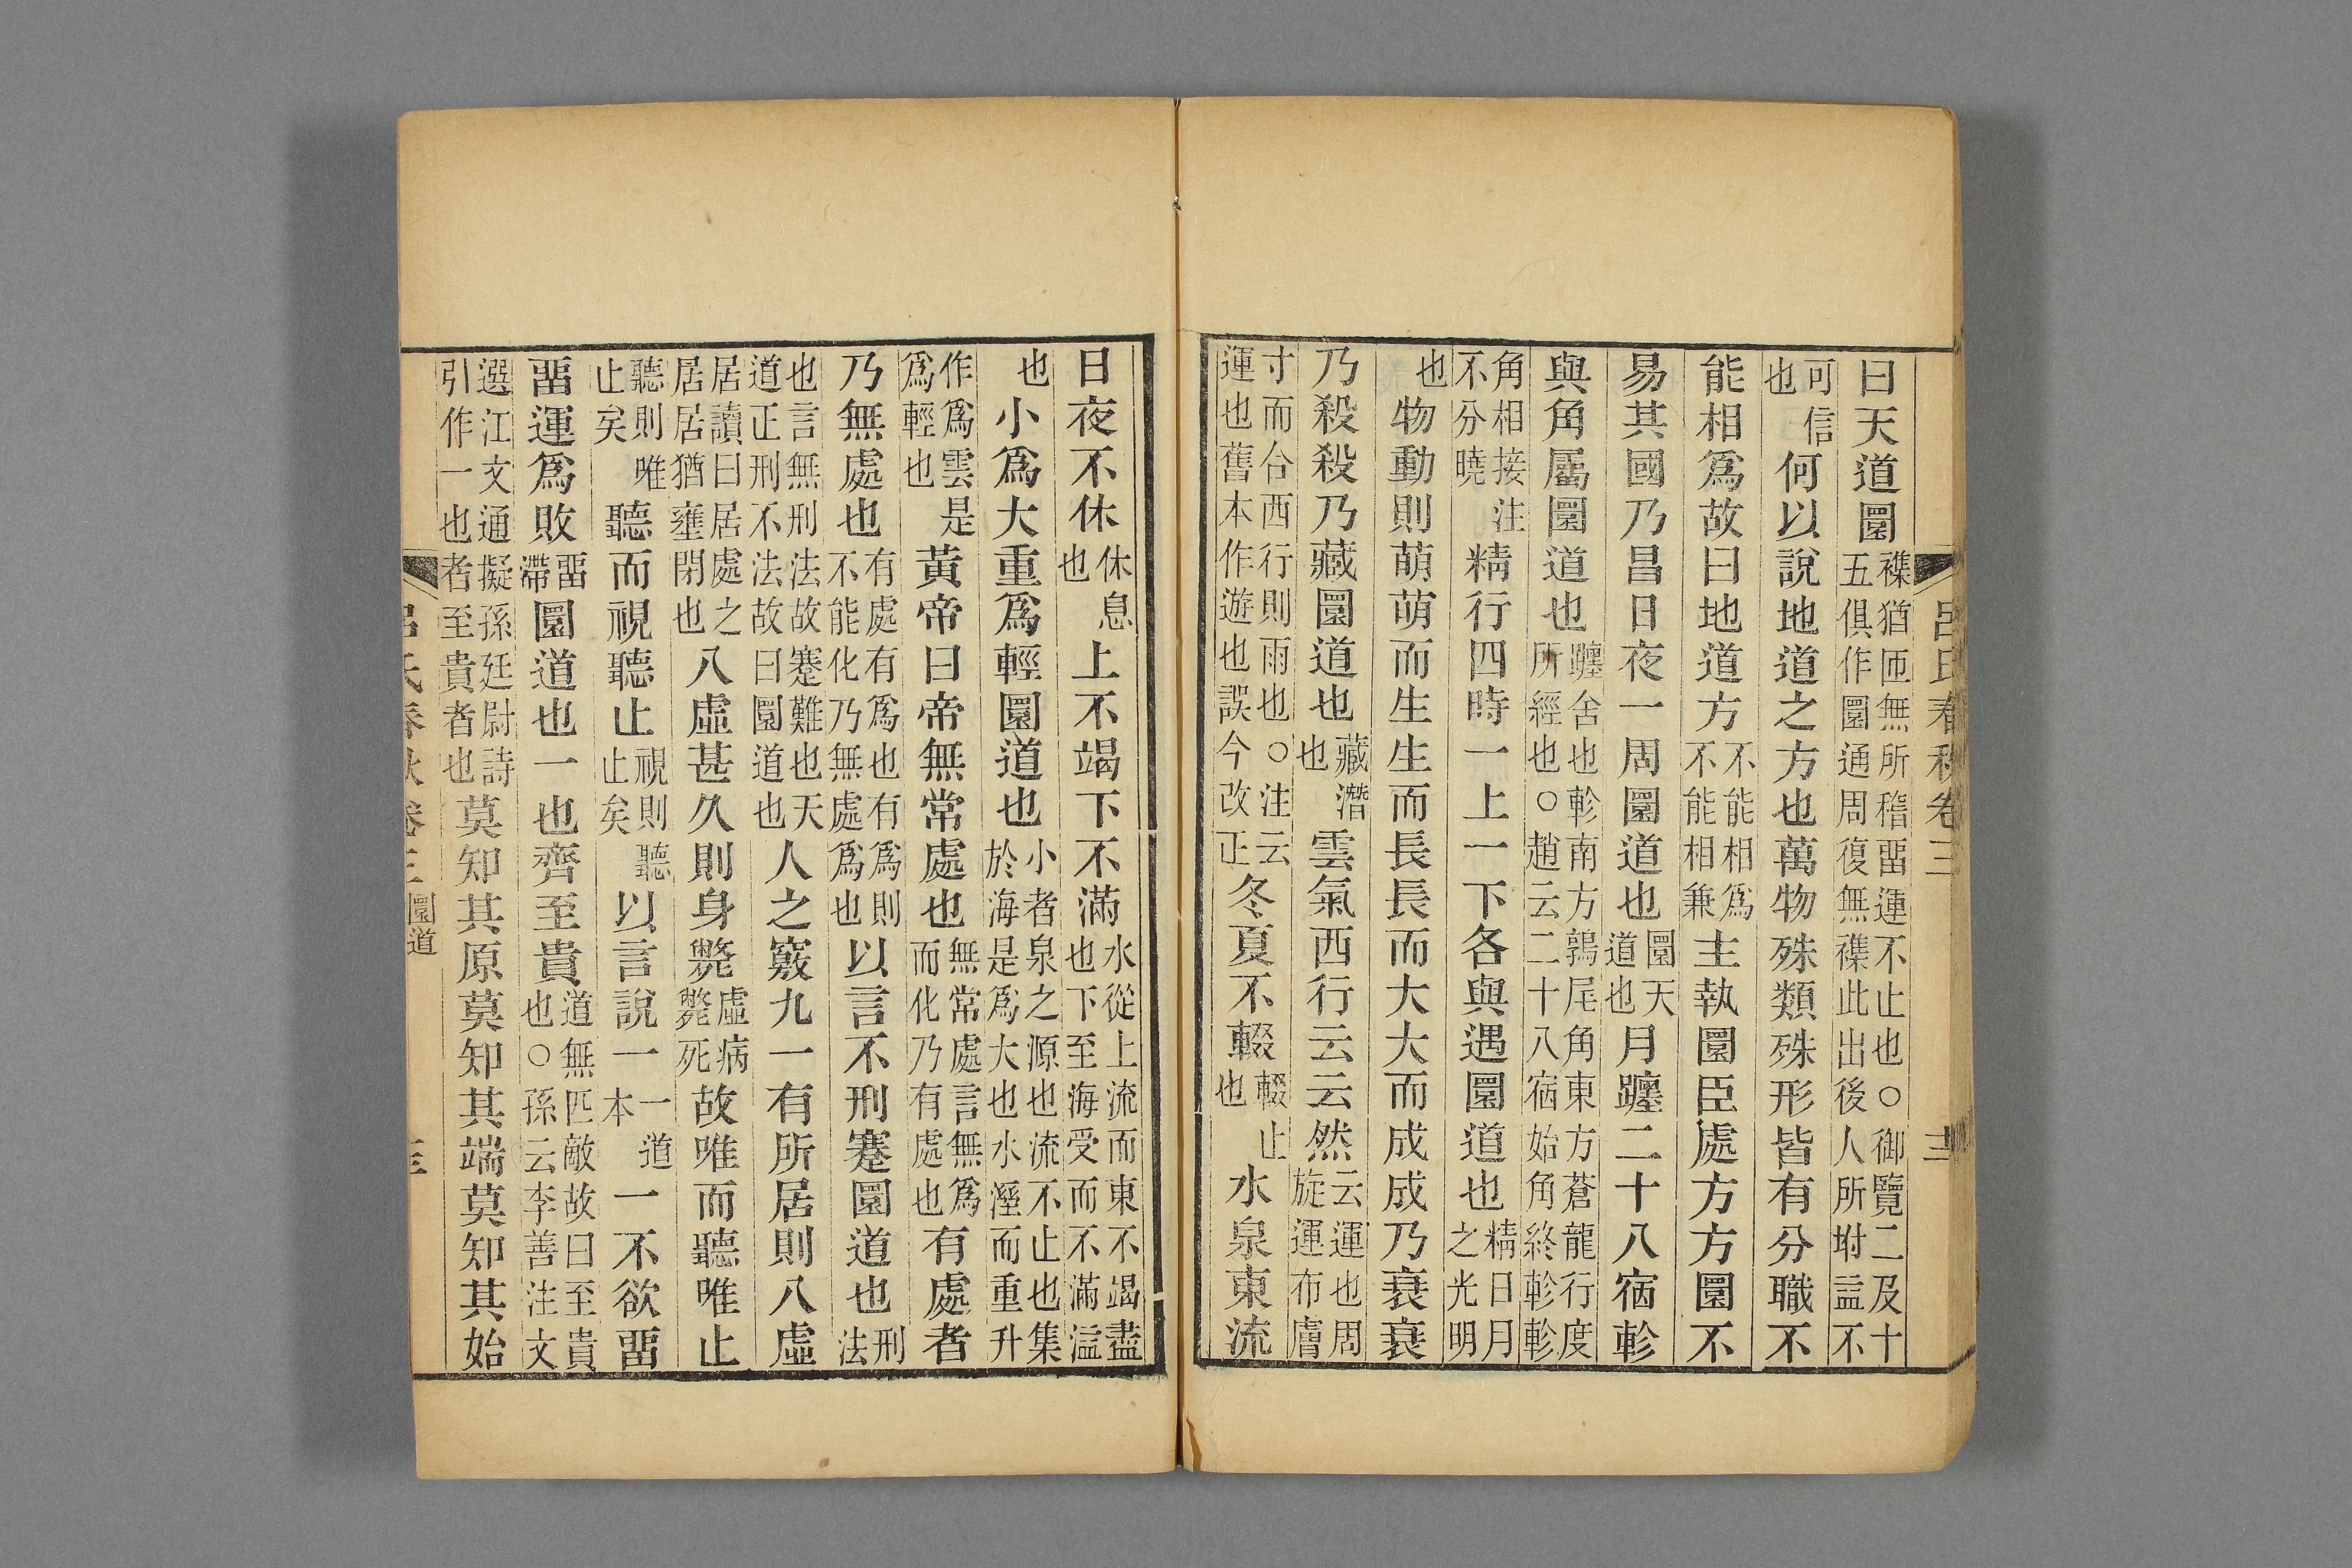 呂氏春秋卷三
曰天道圜襍猶匝無所稽畱運不止也○御覽二及十
五俱作圜通周復無襍此出後人所坿葢不
可信
也何以說地道之方也萬物殊類殊形皆有分職不
能相爲故曰地道方不能相爲
不能相兼主執圜臣處方方圜不
易其國乃昌日夜一周圜道也圜天
道也月躔二十八宿軫
與角屬圜道也躔舍也軫南方鶉尾角東方蒼龍行度
所經也○趙云二十八宿始角終軫軫
角相接注
不分曉精行四時一上一下各與遇圜道也精日月
之光明
也物動則萌萌而生生而長長而大大而成成乃衰衰
乃殺殺乃藏圜道也藏潛
也雲氣西行云云然云運也周
旋運布膚
寸而合西行則雨也○注云
運也舊本作遊也誤今改正冬夏不輟輟止
也水泉東流
日夜不休休息
也上不竭下不滿水從上流而東不竭盡
也下至海受而不滿溢
也小爲大重爲輕圜道也小者泉之源也流不止也集
於海是爲大也水溼而重升
作爲雲是
爲輕也黃帝曰帝無常處也無常處言無爲
而化乃有處也有處者
乃無處也有處有爲也有爲則
不能化乃無處爲也以言不刑蹇圜道也刑
法
也言無刑法故蹇難也天
道正刑不法故曰圜道也人之竅九一有所居則八虛
居讀曰居處之
居居猶壅閉也八虛甚久則身斃虛病
斃死故唯而聽唯止
聽則唯
止矣聽而視聽止視則聽
止矣以言說一一道
本一不欲畱
畱運爲敗畱
滯圜道也一也齊至貴道無匹敵故曰至貴
也○孫云李善注文
選江文通擬孫廷尉詩
引作一也者至貴者也莫知其原莫知其端莫知其始
呂氏春秋卷三 圜道